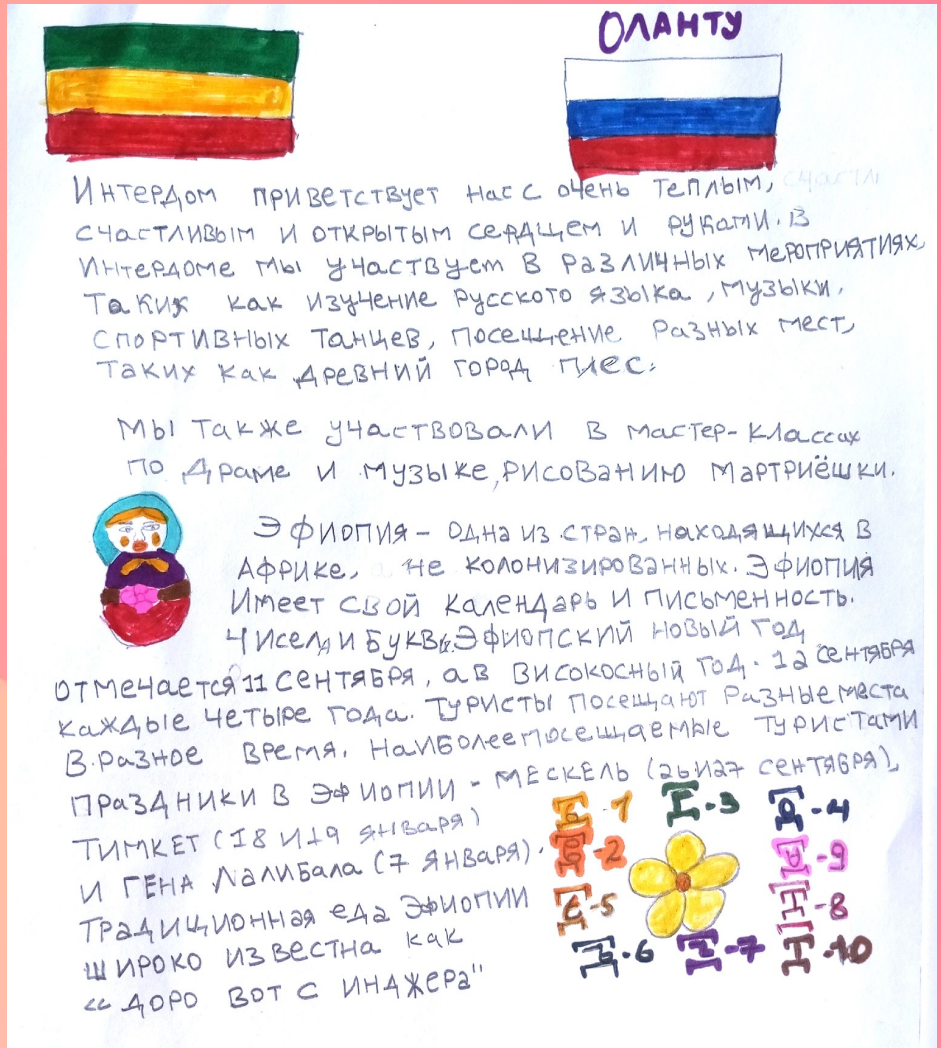 ОЛАНТУ
ИНТЕРДОМ ПРИВЕТСТВУЕТ НАС С ОЧЕНЬ ТЕПЛЫМ,
СЧАСТЛИВЫМ И ОТКРЫТЫМ СЕРДЦЕМ И РУКАМИ. В
ИНТЕРДОМЕ МЫ УЧАСТВУЕТ В РАЗЛИЧНЫХ МЕРОПРИЯТИЯХ,
ТАКИХ КАК ИЗУЧЕНИЕ РУССКОГО ЯЗЫКА, МУЗЫКИ,
СПОРТИВНЫХ ТАНЦЕВ, ПОСЕЩЕНИЕ РАЗНЫХ МЕСТ,
ТАКИХ КАК ДРЕВНИЙ ГОРОД ПЛЕС.
МЫ ТАКЖЕ УЧАСТВОВАЛИ В МАСТЕР-КЛАССАХ
ПО ДРАМЕ И МУЗЫКЕ, РИСОВАНИЮ МАРТРИЁШКИ.
ЭФИОПИЯ - ОДНА ИЗ СТРАН, НАХОДЯЩИХСЯ В
АФРИКЕ, НЕ КОЛОНИЗИРОВАННЫХ. ЭФИОПИЯ
ИМЕЕТ СВОЙ КАЛЕНДАРЬ И ПИСЬМЕННОСТЬ.
ЧИСЕЛ И БУКВ. ЭФИОПСКИЙ НОВЫЙ ГОД
ОТМЕЧАЕТСЯ 11 СЕНТЯБРЯ, А В ВИСОКОСНЫЙ ГОД. 12 СЕНТЯБРЯ
КАЖДЫЕ ЧЕТЫРЕ ГОДА. ТУРИСТЫ ПОСЕЩАЮТ РАЗНЫЕ МЕСТА
В РАЗНОЕ ВРЕМЯ. НАИБОЛЕЕ ПОСЕЩАЕМЫЕ ТУРИСТАМИ
ПРАЗДНИКИ В ЭФИОПИИ - МЕСКЕЛЬ (26 И 27 СЕНТЯБРЯ),
ТИМКЕТ (18 И 19 ЯНВАРЯ)
И ГЕНА ЛАЛИБАЛА (7 ЯНВАРЯ).
ТРАДИЦИОННАЯ ЕДА ЭФИОПИИ
ШИРОКО ИЗВЕСТНА КАК
"ДОРО ВОТ С ИНДЖЕРА"
፩-1 ፫-3 ፬-4
፪-2 ፱-9
፭-5 ፰-8
፮-6 ፯-7 ፲-10